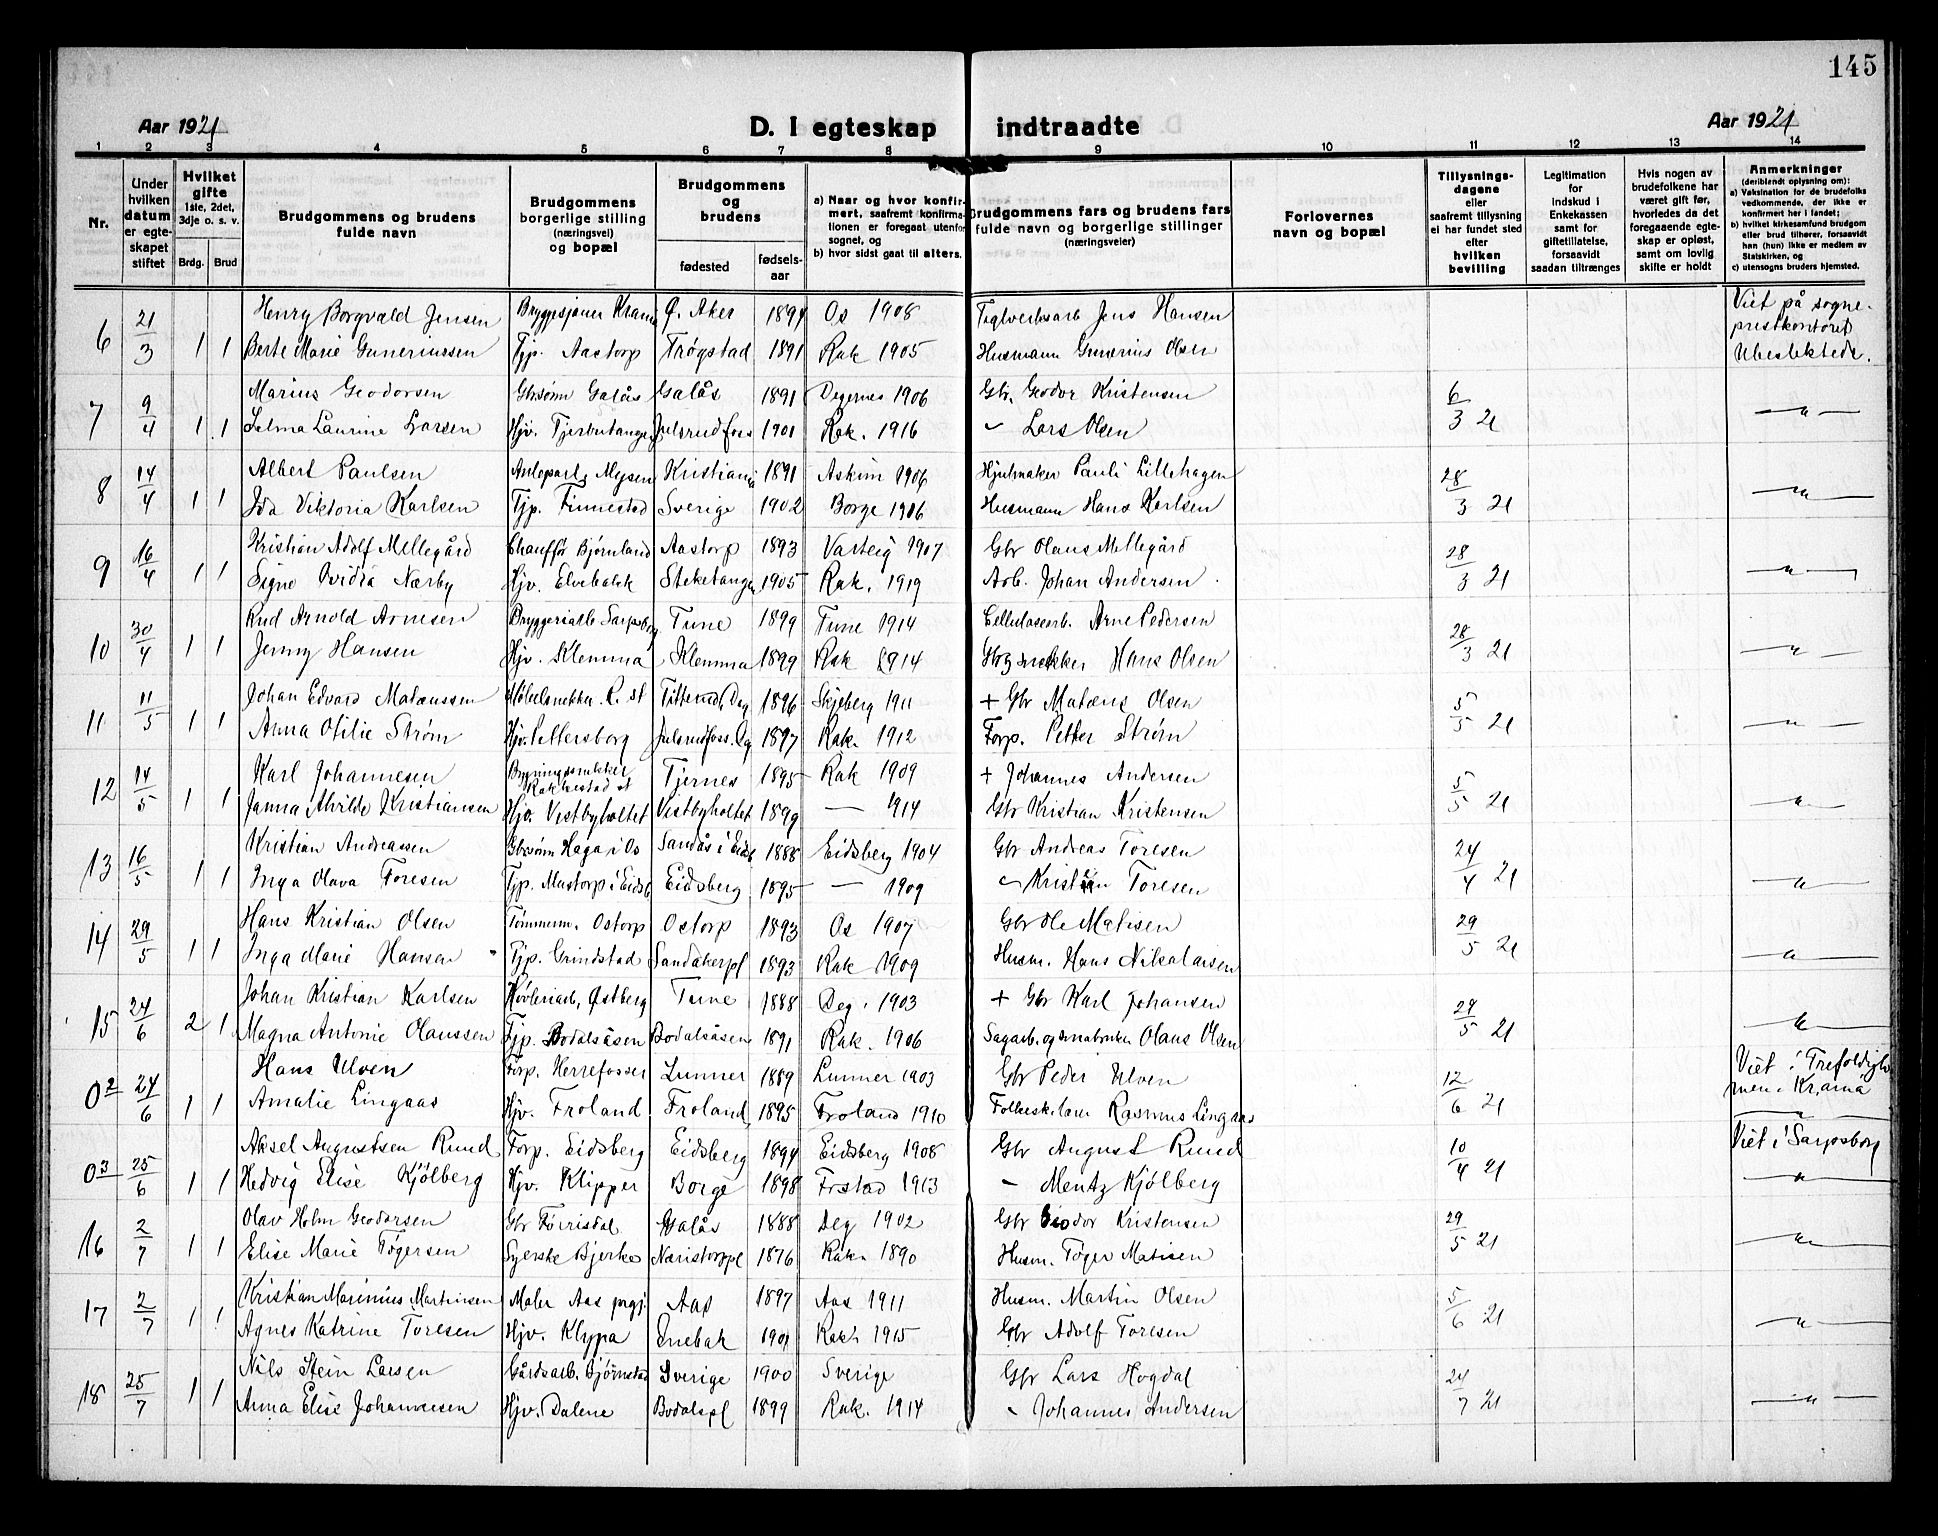 145
Aar 1921
D. I egteskap indtraadte
Aar 1921
1 2 3 4 5 6 7 8 9 10 11 12 13 14
Nr.
Under hvilken datum er egteskapet stiftet
Hvilket gifte 1ste, 2det, 3dje o. s. v.
Brdg. Brud
Brudgommens og brudens fulde navn
Brudgommens borgerlige stilling (næringsvei) og bopæl
Brudgommens og brudens
fødested fødselsaar
a) Naar og hvor konfirmert, saafremt konfirmationen er foregaat utenfor sognet, og
b) hvor sidst gaat til alters.
Brudgommens fars og brudens fars fulde navn og borgerlige stillinger (næringsveier)
Forlovernes navn og bopæl
Tillysningsdagene eller saafremt tillysning ei har fundet sted efter hvilken bevilling
Legitimation for indskud i Enkekassen samt for giftetillatelse, forsaavidt saadan tiltrænges
Hvis nogen av brudefolkene har været gift før, hvorledes da det foregaaende egteskap er opløst, samt om lovlig skifte er holdt
Anmerkninger (deriblendt oplysning om):
a) Vaksination for de brudefolks vedkommende, der ikke er konfirmert her i landet;
b) hvilket kirkesamfund brudgom eller brud tilhører, forsaavidt han (hun) ikke er medlem av Statskirken, og
c) utensogns bruders hjemsted.
Henry Borgvald Jensen Bryggesjauer Krania Ø. Aker 1894 Os 1908 Teglverksarb Jens Hansen Viet på sogneprestkontoret
6 21/3 1 1 Berte Marie Gunerinssen Tjp. Aastorp Trøgstad 1891 Rak 1905 Husmann Gunerius Olsen Ubeslektede.
Marius Geodorsen Gbrsønn Galås Galås 1891 Degernes 1906 Gbr. Geodor Kristensen
7 9/4 1 1 Selma Laurine Larsen Hjv. Julsrudfoss 1901 Rak. 1916 " Lars Olsen 6/3 21 — " —
Albert Paulsen Mysen Kristiania 1891 Askim 1906 Hjulmaker Pauli Lillehagen
8 14/4 1 1 Ida Viktoria Karlsen Tjp. Finnestad Sverige 1902 Borge 1916 Husmann Hans Karlsen 28/3 21 — " —
Kristian Adolf Mellegård Chauffør Bjørnland Aastorp 1893 Varteig 1907 Gbr Olaus Mellegård
9 16/4 1 1 Signe Ovidia Nærby Hjv. Elvebakk Steketangen 1905 Rak. 1919 Arb. Johan Andersen 28/3 21 — " —
Rud Arnold Arnesen Bryggeriarb Sarpsborg Tune 1899 Tune 1914 Cellulosearb. Arne Pedersen
10 30/4 1 1 Jenny Hansen Hjv. Klemma Klemma 1899 Rak 1914 Hans Olsen 28/3 21 — " —
Johan Edvard Matæussen Møbelsnekker R. st Deg 1896 Skjeberg 1911 + Gbr Matæus Olsen
11 11/5 1 1 Anna Otilie Strøm Hjv. Pettersborg Julsrudfoss. Dg 1897 Rak. 1912 Forp. Petter Strøm 5/5 21 — " —
Karl Johannesen Bygningssnekker Rakkestad st Tjernes 1895 Rak 1909 + Johannes Andersen
12 14/5 1 1 Janna Alvilde Kristiansen Hjv Vestbyholtet Vestbyholtet 1899 — 1914 Gbr Kristian Kristensen 5/5 21 — " —
Kristian Andreassen Gbrsønn Haga i Os Sandås i Eidsb 1888 Eidsberg 1904 Gbr Andreas Toresen
13 16/5 1 1 Inga Olava Toresen Tjp. Mastorp i Eidsb Eidsberg 1895 — 1909 " Kristian Toresen 24/4 21 — " —
Hans Kristian Olsen Tømmerm. Ostorp Ostorp 1893 Os 1907 Gbr Ole Matisen
14 29/5 1 1 Inga Marie Hansen Tjp. Grindstad Sandakerpl 1893 Rak 1909 Husm. Hans Nikolaisen 29/5 21 — " —
Johan Kristian Karlsen Høvleriarb, Østberg Tune 1888 Deg. 1903 + Gbr Karl Johansen
15 24/6 2 1 Magna Antonie Olaussen Tjp. Bodalsåsen Bodalsåsen 1891 Rak. 1906 Sagarb. og småbruker Olaus Olsen 29/5 21 — " —
Hans Ulven Forp. Herrefosser Lunner 1889 Lunner 1903 Gbr Peder Ulven Viet i Trefoldigh
02 24/6 1 1 Amalie Lingaas Hjv. Froland Froland 1895 Froland 1910 Folkesk.lærer Rasmus Lingaas 12/6 21 Kr.ania
Aksel Augustsen Rund Forp. Eidsberg Eidsberg 1894 Eidsberg 1908 Gbr August Rund Viet i Sarpsborg
03 25/6 1 1 Hedvig Elise Kjølberg Hjv. Klipper Borge 1898 Frstad 1913 " Mentz Kjølberg 10/4 21 — " —
Olav Holm Geodorsen Gbr Førrisdal Galås 1888 Deg 1902 Gbr Geodor Kristensen
16 2/7 1 1 Elise Marie Tøgersen Syerske Bjerke Naristorppl 1876 Rak. 1890 Husm. Tøger Matisen 29/5 21 — " —
Kristian Marinius Martinsen Maler Aas prgj. Aas 1897 Aas 1911 Husm. Martin Olsen
17 2/7 1 1 Agnes Katrine Toresen Hjv. Klypa Enebak 1901 Rak. 1915 Gbr Adolf Toresen 5/6 21 — " —
Nils Stein Larsen Gårdsarb. Bjørnstad Sverige 1900 Sverige Gbr Lars Hogdal
18 25/7 1 1 Anna Elise Johannesen Hjv. Dalene Bodalspl 1899 Rak. 1914 " Johannes Andersen 24/7 21 — " —